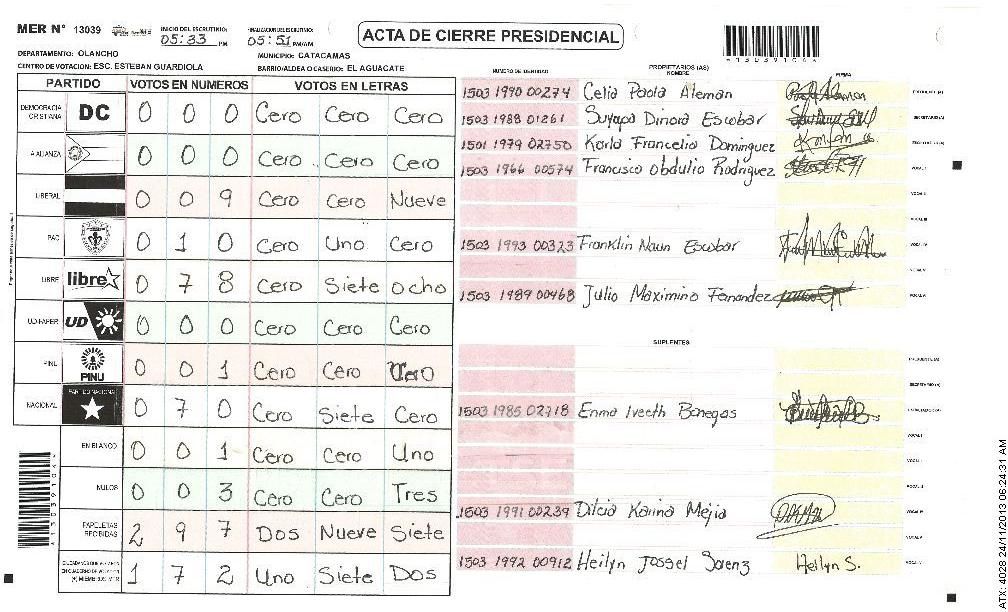 MER N° 13039
INICIO DEL ESCRUTINIO: 05:33 PM
FINALIZACION DEL ESCRUTINIO: 05:51 PM/AM
ACTA DE CIERRE PRESIDENCIAL
DEPARTAMENTO: OLANCHO
MUNICIPIO: CATACAMAS
CENTRO DE VOTACION: ESC. ESTEBAN GUARDIOLA
BARRIO/ALDEA O CASERIO: EL AGUACATE
PARTIDO VOTOS EN NUMEROS VOTOS EN LETRAS
DEMOCRACIA CRISTIANA DC 0 0 0 Cero Cero Cero
ALIANZA 0 0 0 Cero Cero Cero
LIBERAL 0 0 9 Cero Cero Nueve
PAC 0 1 0 Cero Uno Cero
LIBRE libre 0 7 8 Cero Siete ocho
UD-FAPER UD 0 0 0 Cero Cero Cero
PINU PINU 0 0 1 Cero Cero
NACIONAL PARTIDO NACIONAL 0 7 0 Cero Siete Cero
EN BLANCO 0 0 1 Cero Cero Uno
NULOS 0 0 3 Cero Cero Tres
PAPELETAS RECIBIDAS 2 9 7 Dos Nueve Siete
1 7 2 Uno Siete Dos
NUMERO DE IDENTIDAD PROPIETARIOS (AS) NOMBRE FIRMA
1503 1990 00274 Celia Paola Aleman
1503 1988 01261 Suyapa Dinora Escobar
1501 1979 02750 Karla Francelia Dominguez
1503 1966 00574 Francisco Obdulio Rodriguez
1503 1993 00323 Franklin Naun Escobar
1503 1989 00468 Julio Maximino Fernandez
SUPLENTES
1503 1985 02718 Enma Iveth Banegas
1503 1991 00239 Dilcia Karina Mejia
1503 1992 00912 Heilyn Jossel Saenz Heilyn S.
ATX: 4028 24/11/2013 06:24:31 AM